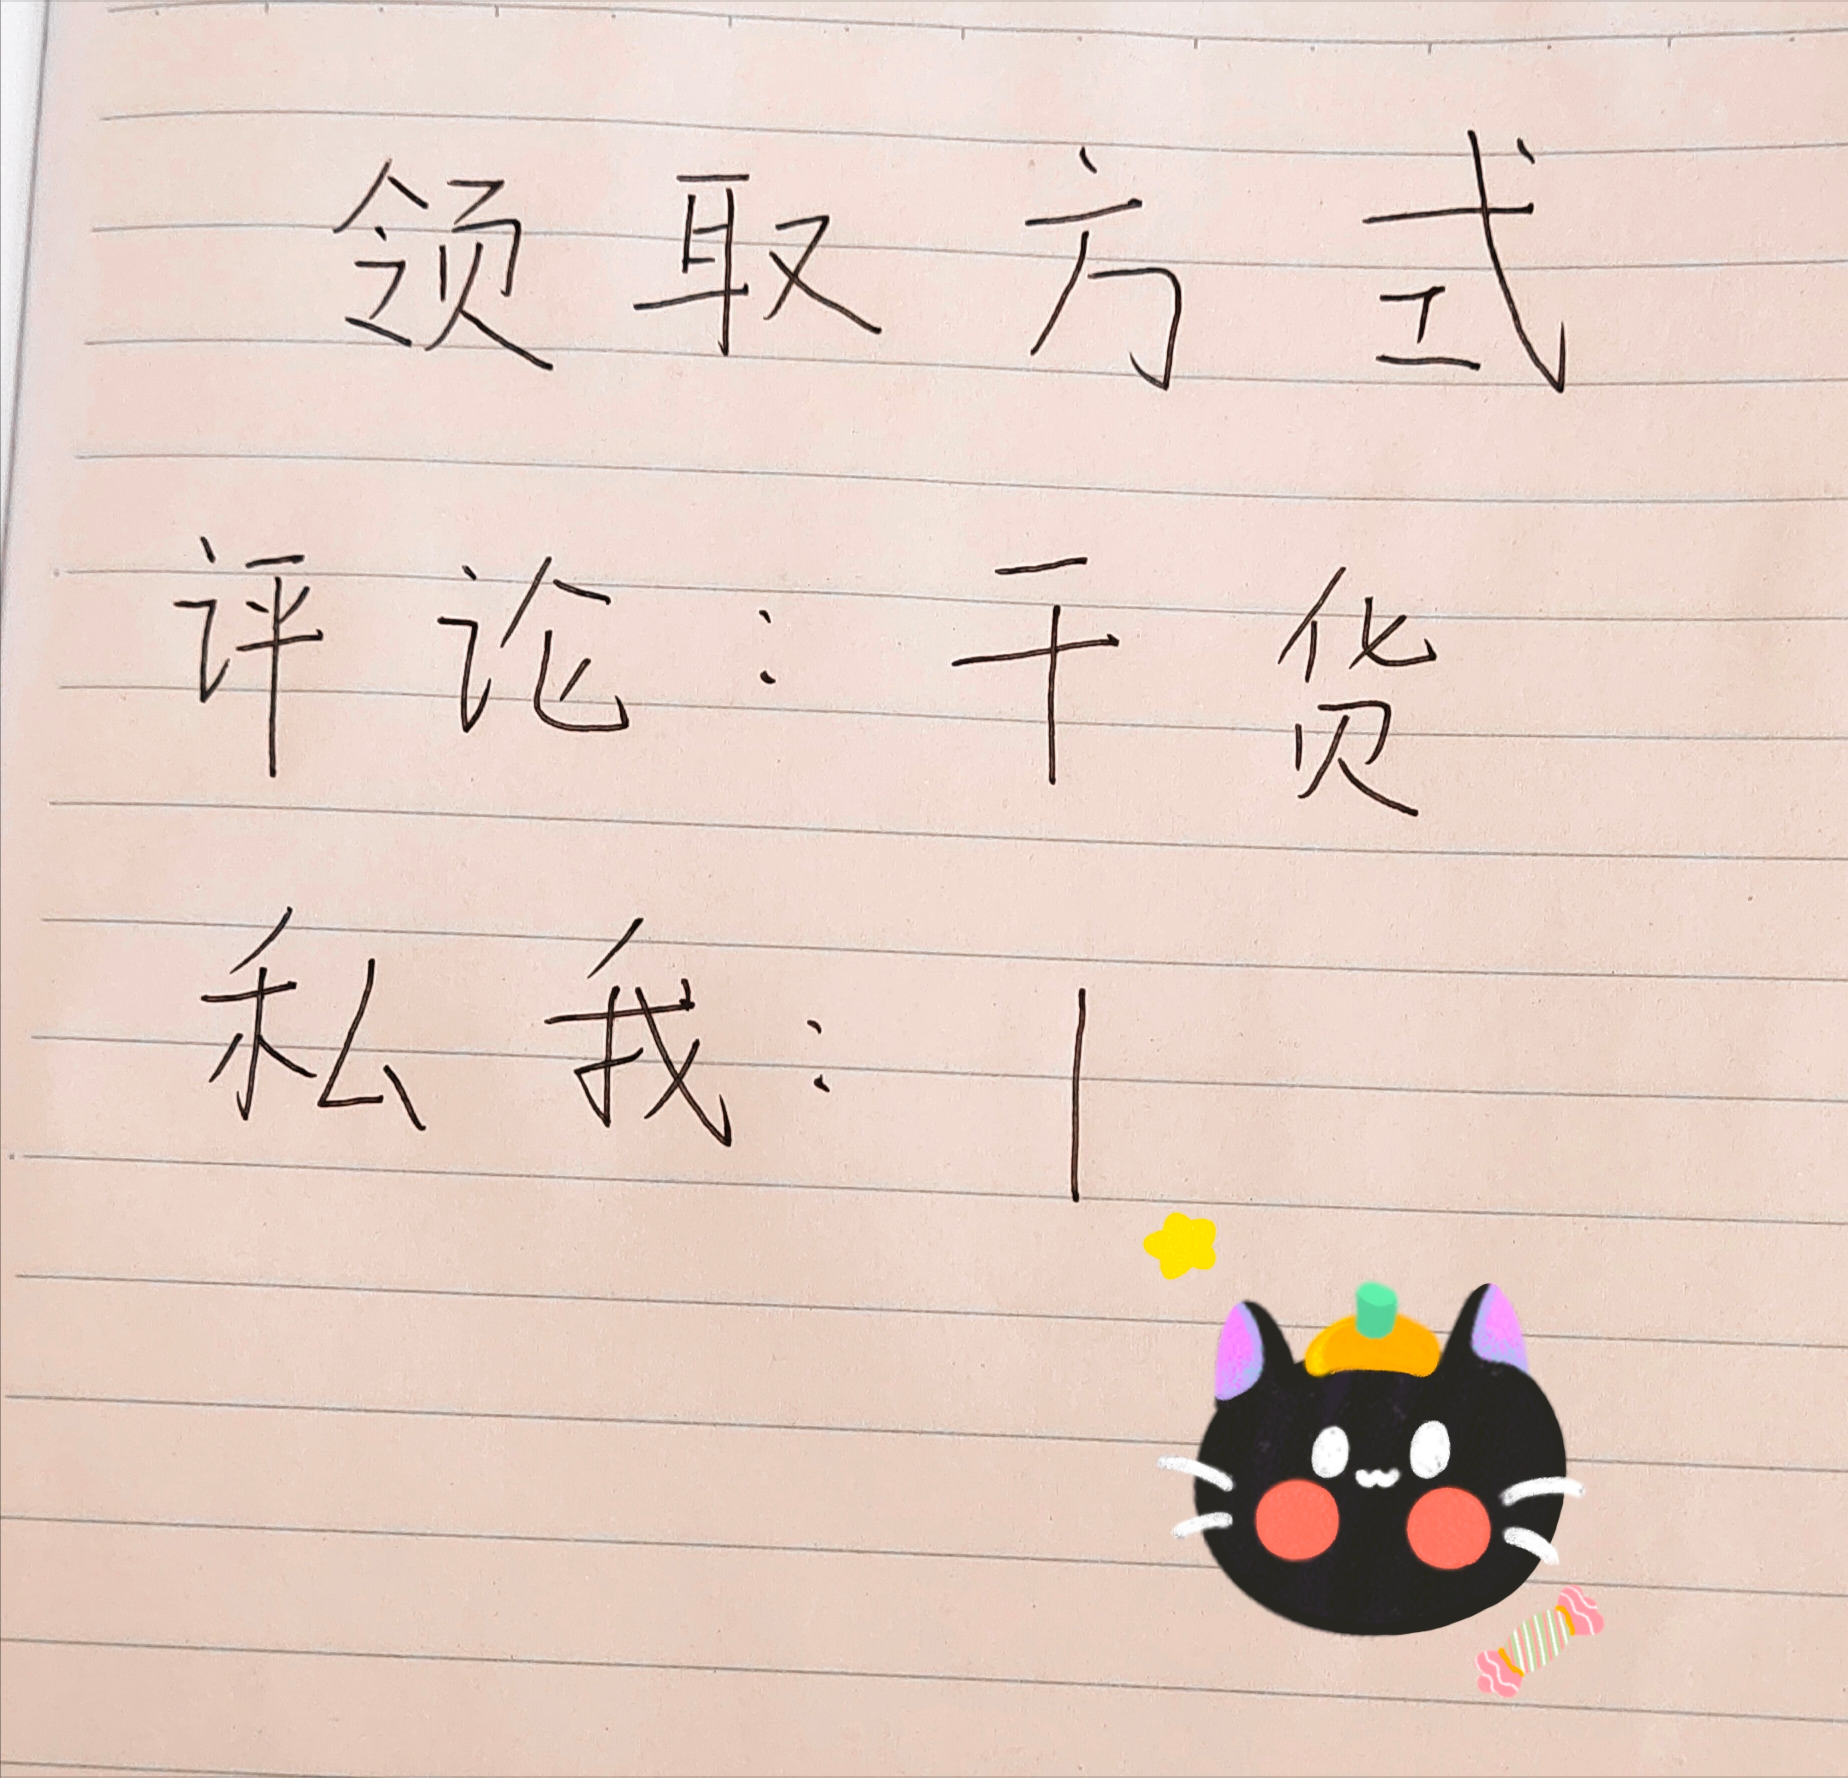 领取方式
评论：干货
私我：1